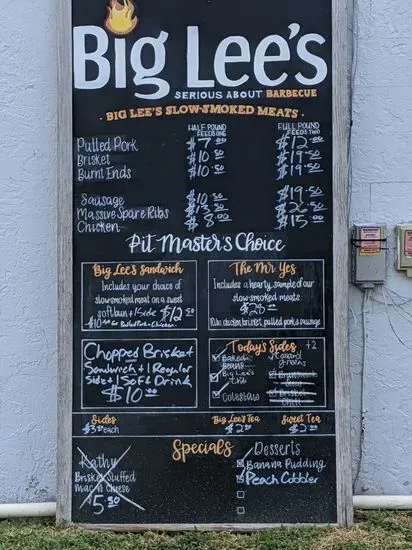 Big Lee's
SERIOUS ABOUT BARBECUE
· BIG LEE'S SLOW-SMOKED MEATS ·
HALF POUND FULL POUND
FEEDS ONE FEEDS TWO
Pulled Pork $7.00 $12.00
Brisket $10.50 $19.50
Burnt Ends $10.50 $19.50
Sausage $10.50 $19.50
Massive Spare Ribs $13.50 $26.50
Chicken $8.00 $15.00
Pit Master's Choice
Big Lee's Sandwich
Includes your choice of
slow-smoked meat on a sweet
soft bun + 1 Side $12.50
$10.00 for Pulled Pork or Chicken
The Mr Yes
Includes a hearty sample of our
slow-smoked meats
$28.00
Ribs, chicken, brisket, pulled pork & sausage
Chopped Brisket
Sandwich + 1 Regular
Side + 1 Soft Drink
$10.00
Today's Sides +2
Baked Beans
Collard greens
Big Lee's Chili
Brunswick Stew
Coleslaw
Brisket Chili
Sides
$3.50 each
Big Lee's Tea
$2.50
Sweet Tea
$2.50
Specials
Kathy
Brisket Stuffed
Mac n Cheese
$5.50
Desserts
Banana Pudding
Peach Cobbler